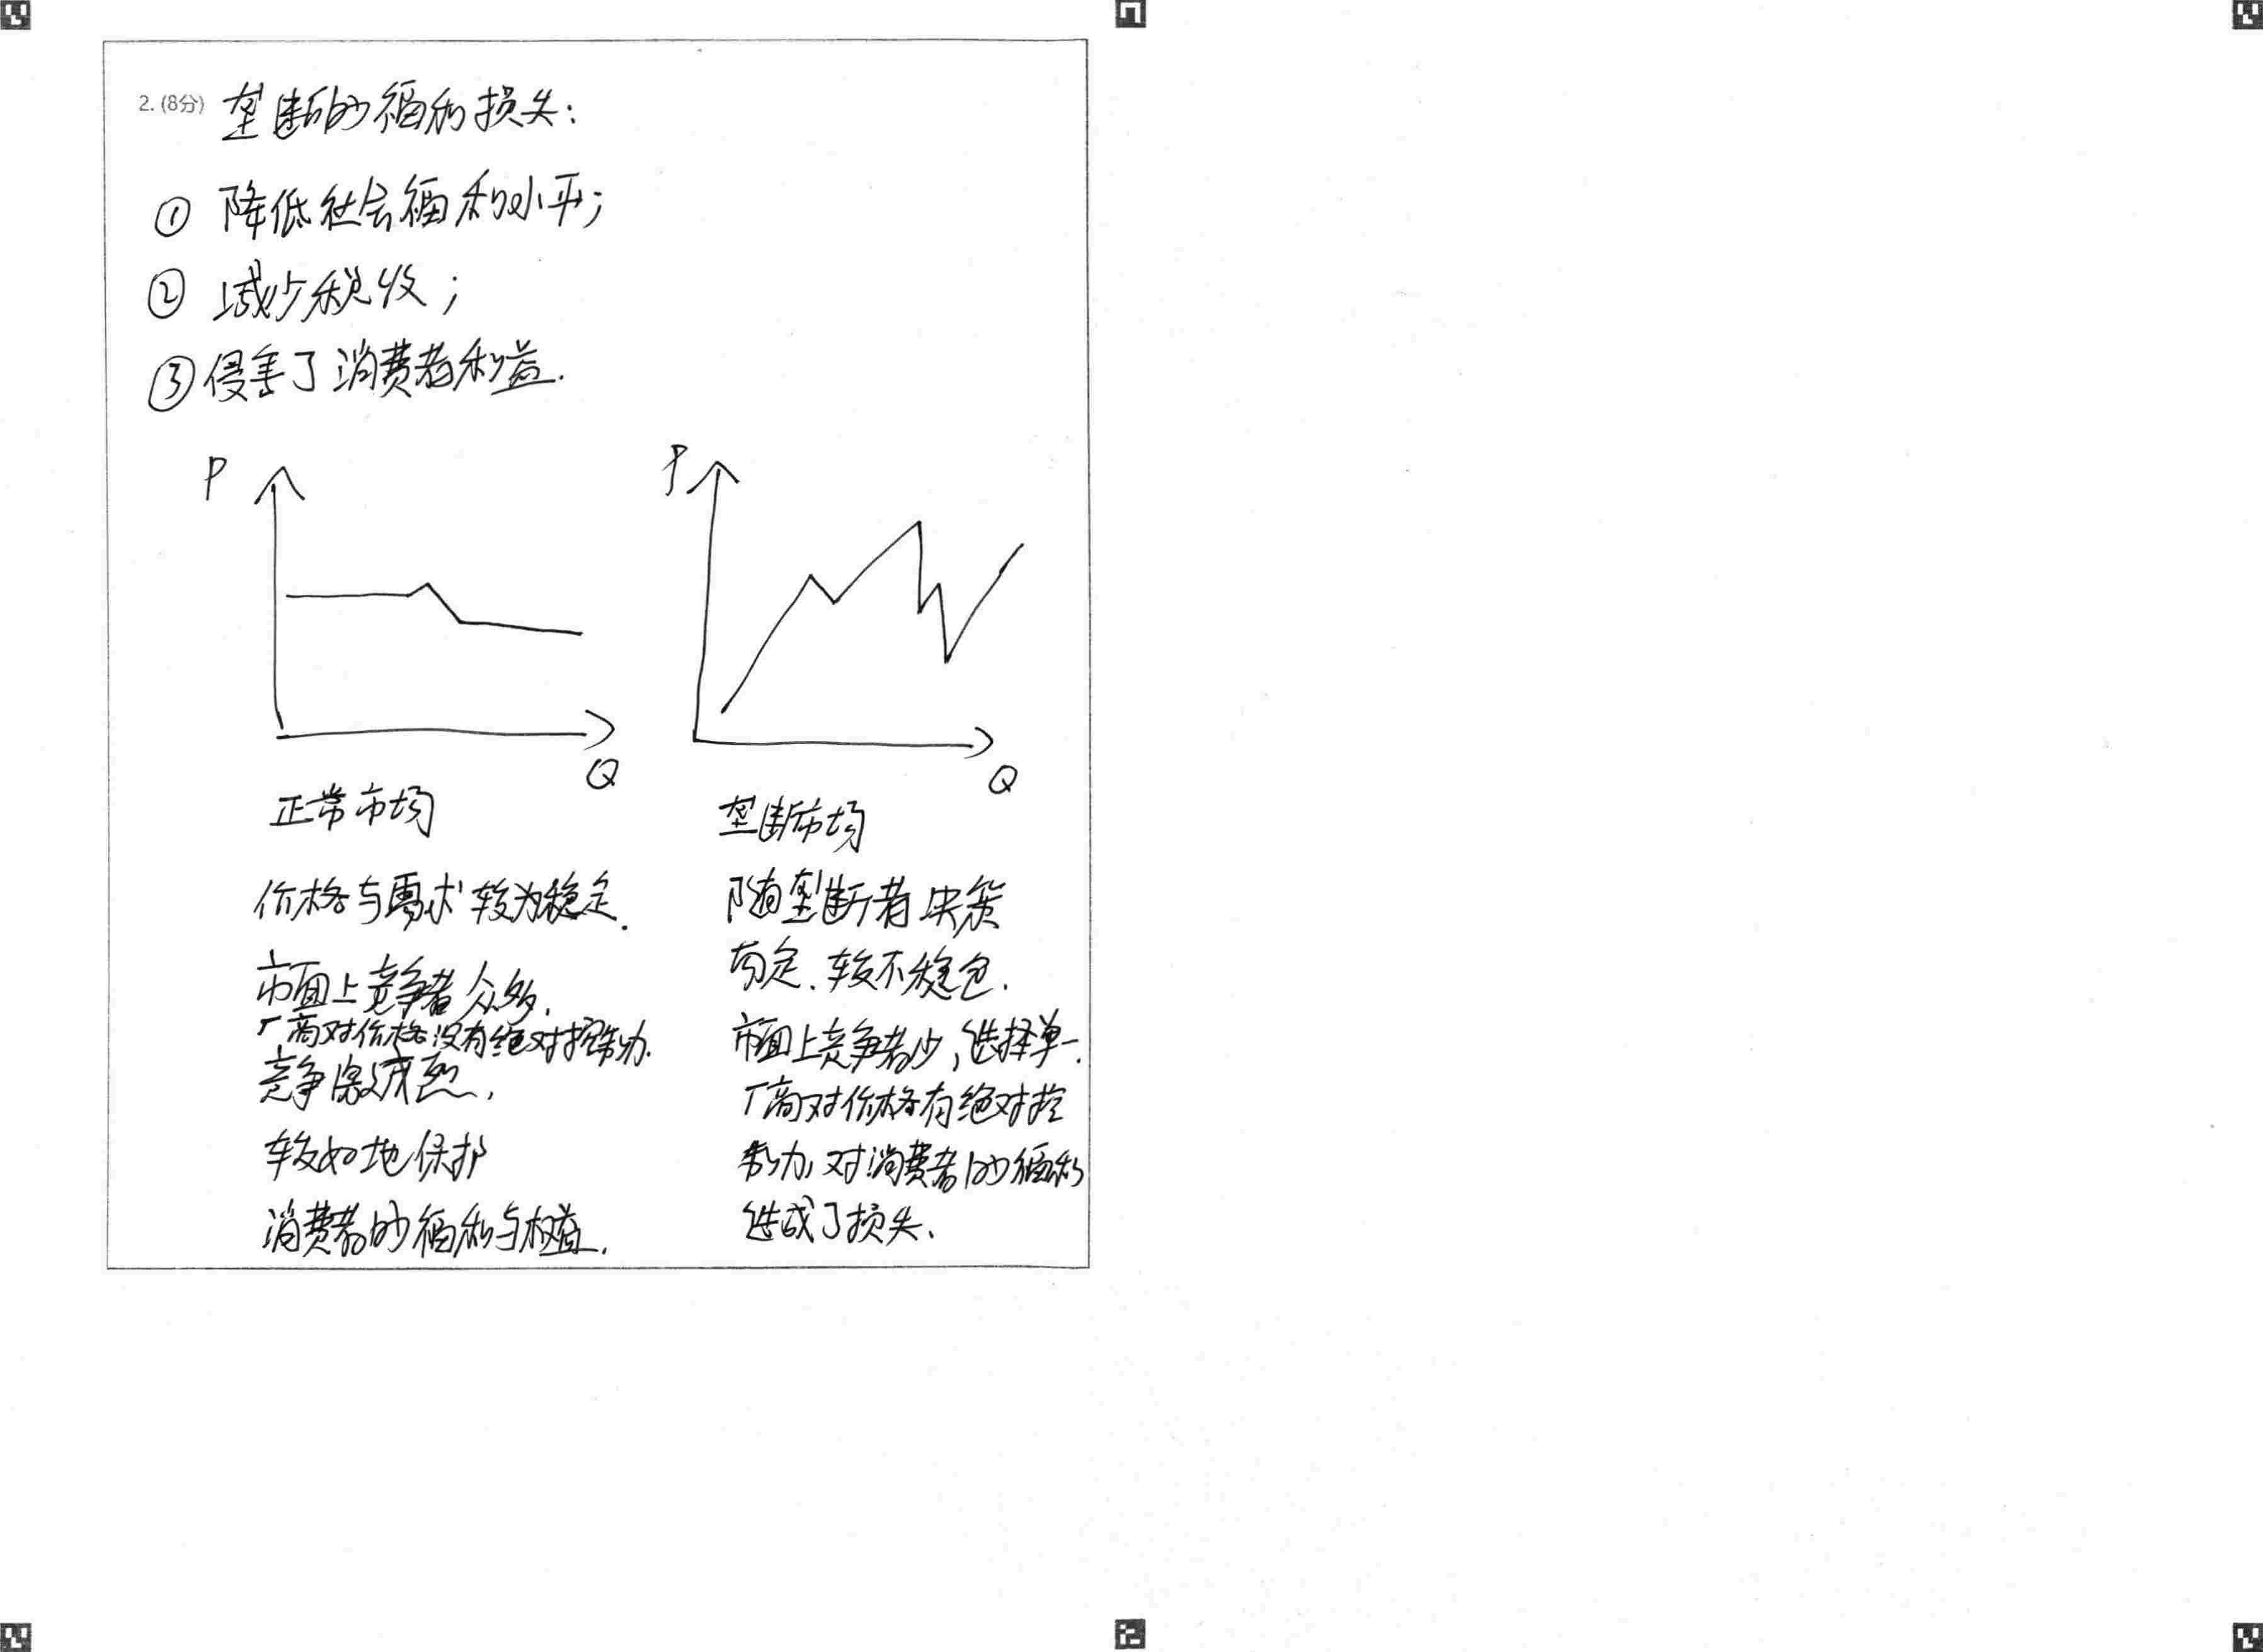 2. (8分) 垄断的福利损失:
① 降低社会福利水平;
② 减少税收;
③ 侵害了消费者利益.
P
Q
正常市场
价格与需求较为稳定.
市面上竞争者众多,
厂商对价格没有绝对控制力.
竞争激烈,
较好地保护
消费者的福利与权益.
P
Q
垄断市场
随垄断者决策
而定、较不稳定.
市面上竞争者少, 选择单一.
厂商对价格有绝对控
制力, 对消费者的福利
造成了损失、